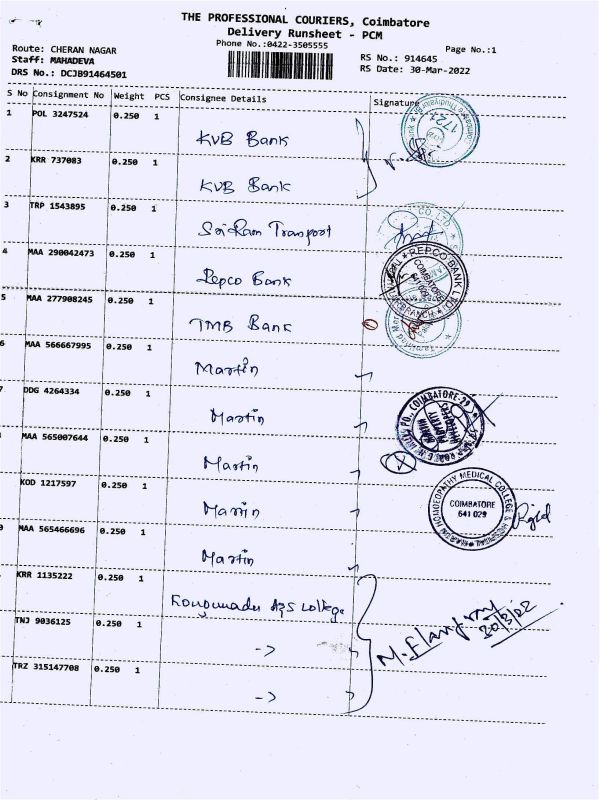 THE PROFESSIONAL COURIERS, Coimbatore
Delivery Runsheet - PCM
Phone No.:0422-3505555
Page No.:1
Route: CHERAN NAGAR
Staff: MAHADEVA
DRS No.: DCJB91464501
RS No.: 914645
RS Date: 30-Mar-2022
S No Consignment No Weight PCS Consignee Details Signature
1 POL 3247524 0.250 1 KVB Bank
2 KRR 737083 0.250 1 KVB Bank
3 TRP 1543895 0.250 1 SriRam Transport
4 MAA 290042473 0.250 1 Repco Bank
REPCO BANK LTD
COIMBATORE
641 029
BRANCH
5 MAA 277908245 0.250 1 TMB Bank
6 MAA 566667995 0.250 1 Martin
DDG 4264334 0.250 1 Martin
MAA 565007644 0.250 1 Martin
COIMBATORE-29
KOD 1217597 0.250 1 Martin
HOMOEOPATHY MEDICAL COLLEGE &
COIMBATORE
641 029
MAA 565466696 0.250 1 Martin
KRR 1135222 0.250 1 College
TNJ 9036125 0.250 1
TRZ 315147708 0.250 1